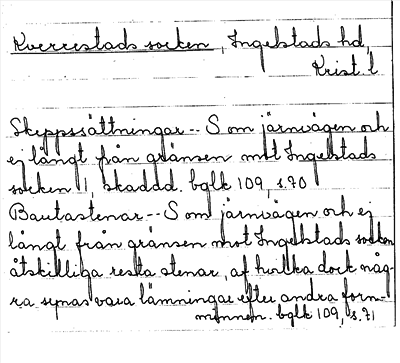 Kverrestads socken, Ingelstads hd,
Krist. l
Skeppssättningar -- S om järnvägen och
ej långt från gränsen mot Ingelstads
socken 1, skaddd. bglk 109, s.70
Bautastenar -- S om järnvägen och ej
långt från gränsen mot Ingelstads socken
åtskilliga resta stenar, af hvilka dock någ-
ra synas vara lämningar efter andra forn-
minnen. bglk 109, s.71